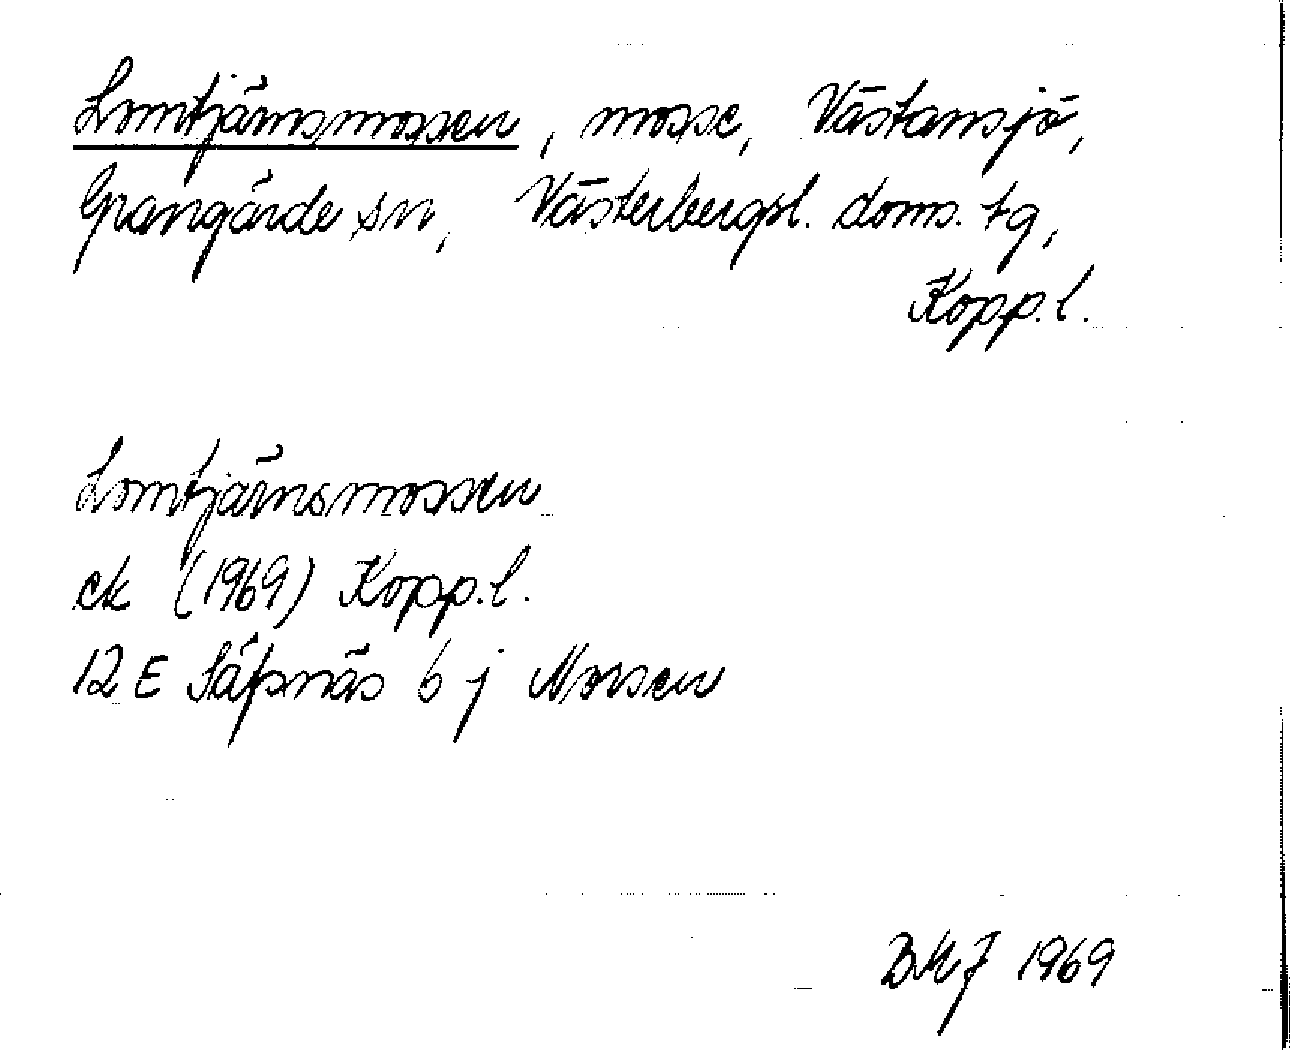 Lomtjärnsmossen, mosse, Västansjö,
Grangärde sn, Västerbergsl. doms. tg,
Kopp. l.
Lomtjärnsmossen
ek (1969) Kopp. l.
12 E Säfsnäs 6 j Mossen
BMJ 1969